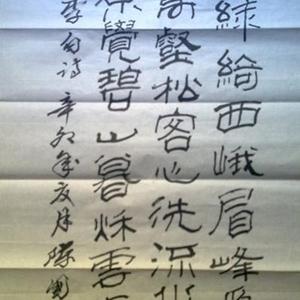 綠綺西峨眉峰
萬壑松客心洗流
覺碧山暮秋雲
李白詩 辛卯年夏月 陳國